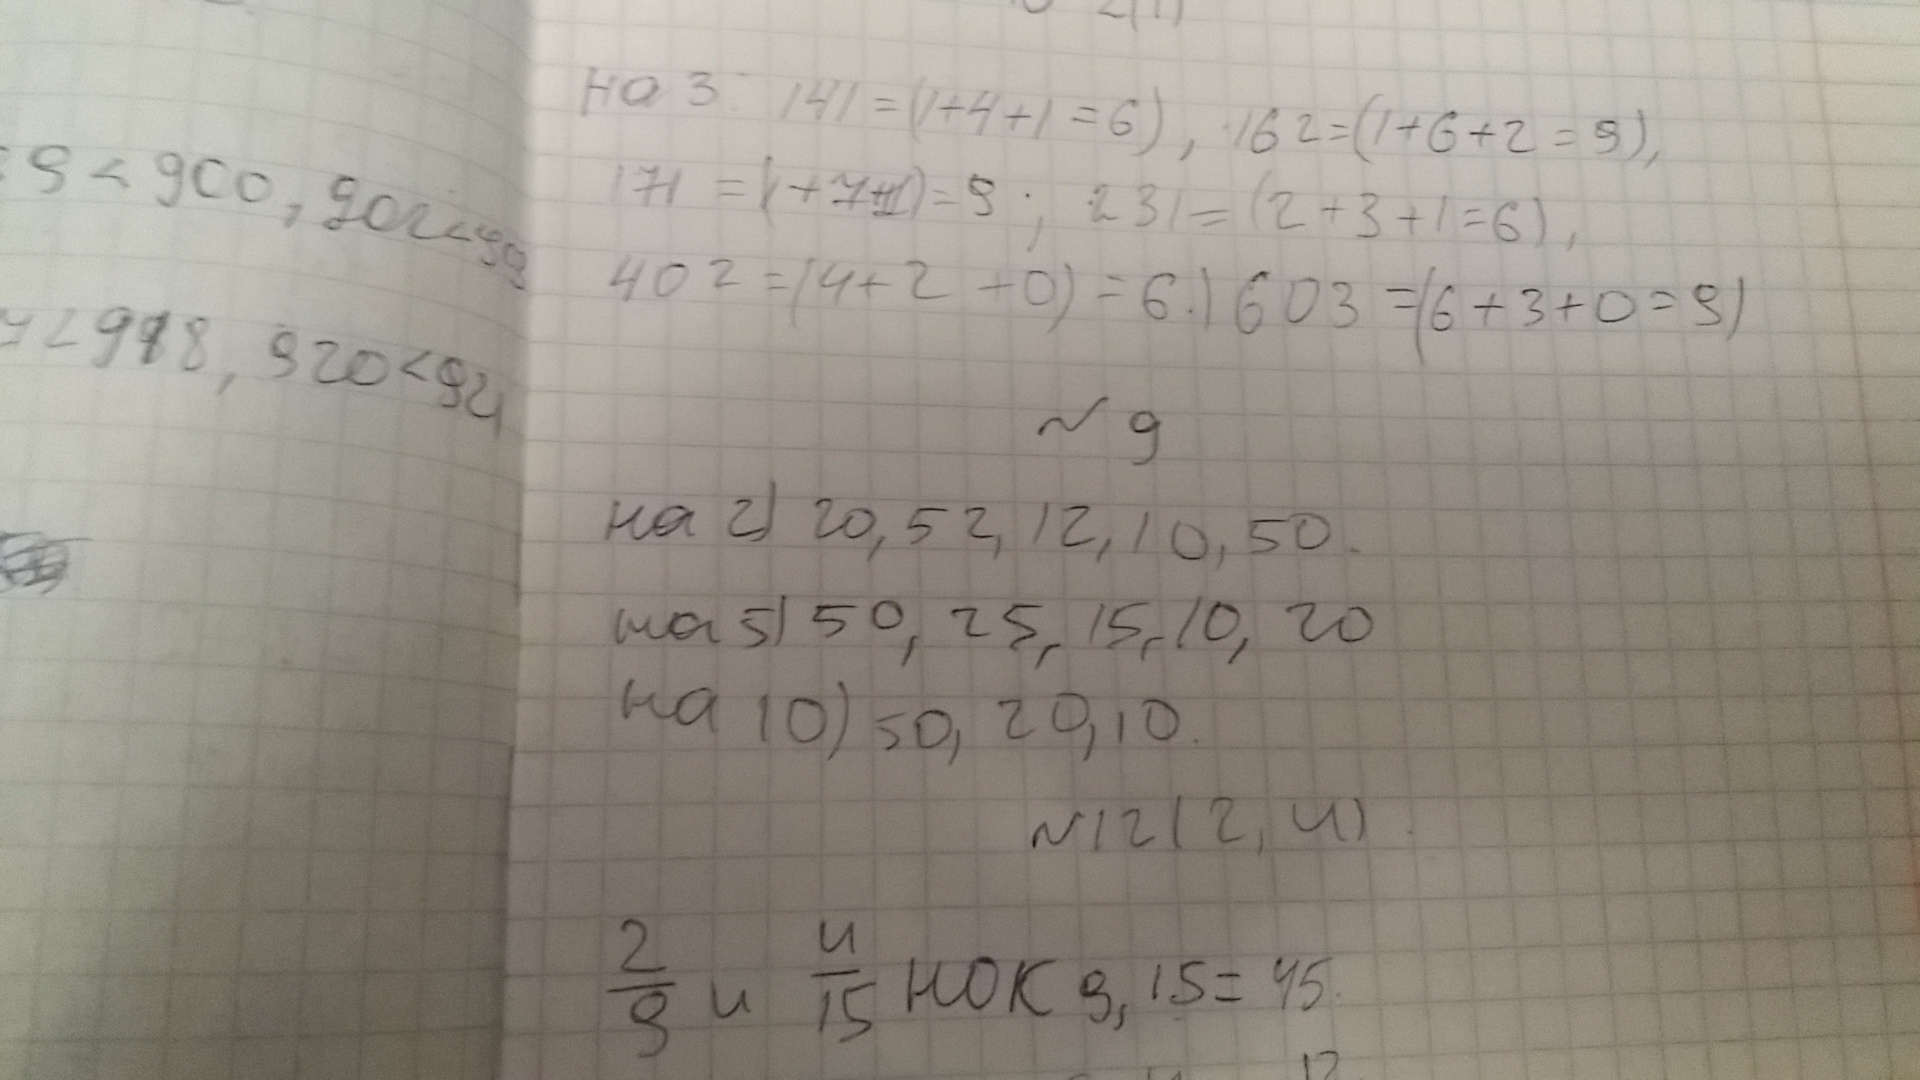 9 < 900, 902 < 
< 998, 920 < 92
на 3: 141 = (1+4+1=6), 162=(1+6+2=9),
171 = (1+7+1)=9; 231=(2+3+1=6),
402=(4+2+0)=6.) 603=(6+3+0=9)
№ 9
на 2) 20, 52, 12, 10, 50.
на 5) 50, 25, 15, 10, 20
на 10) 50, 20, 10.
№12(2,4).
2/9 и 4/15 НОК 9,15=45.